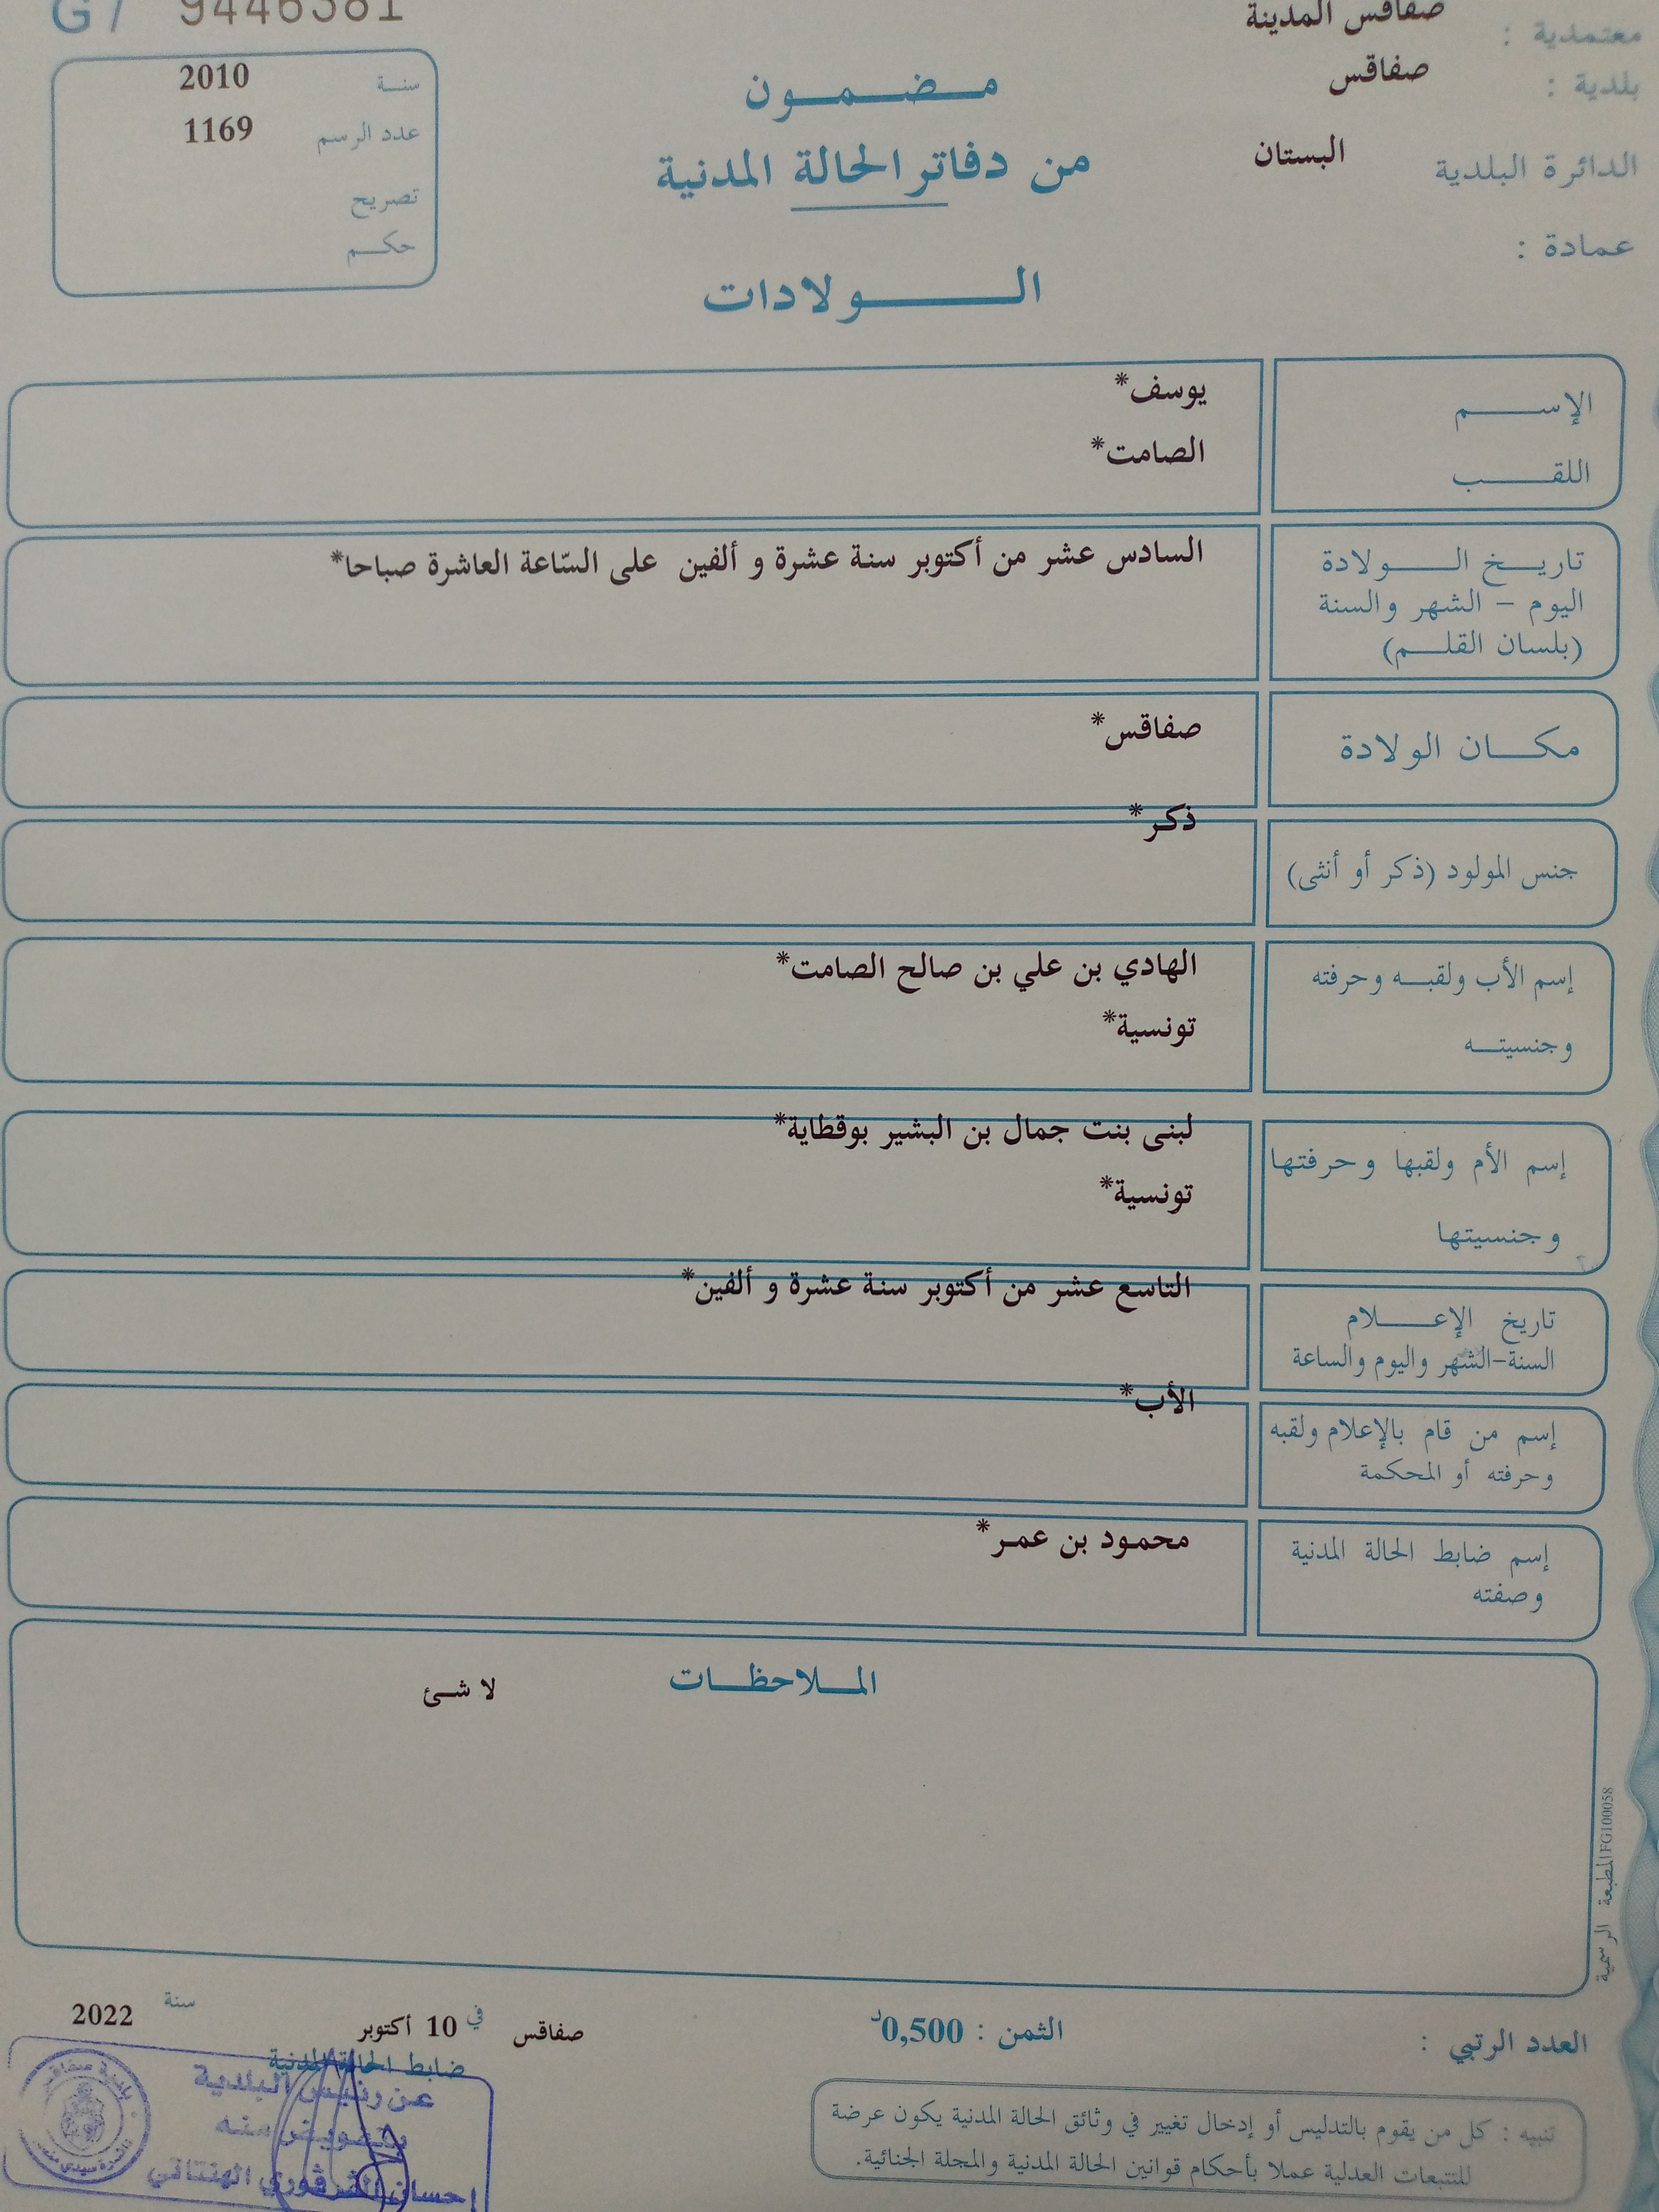 معتمدية : صفاقس المدينة
بلدية : صفاقس
الدائرة البلدية البستان
عمادة :
مضمون
من دفاتر الحالة المدنية
الولادات
G7 9446381
سنة 2010
عدد الرسم 1169
تصريح
حكم
الإسم يوسف*
اللقب الصامت*
تاريخ الولادة السادس عشر من أكتوبر سنة عشرة و ألفين على السّاعة العاشرة صباحا*
اليوم - الشهر والسنة
(بلسان القلم)
مكان الولادة صفاقس*
جنس المولود (ذكر أو أنثى) ذكر*
إسم الأب ولقبه وحرفته الهادي بن علي بن صالح الصامت*
وجنسيته تونسية*
إسم الأم ولقبها وحرفتها لبنى بنت جمال بن البشير بوقطاية*
وجنسيتها تونسية*
تاريخ الإعلام التاسع عشر من أكتوبر سنة عشرة و ألفين*
السنة-الشهر واليوم والساعة
إسم من قام بالإعلام ولقبه الأب*
وحرفته أو المحكمة
إسم ضابط الحالة المدنية محمود بن عمر*
وصفته
الملاحظات لا شئ
المطبعة الرسمية FG100058
العدد الرتبي :
الثمن : 0,500د
صفاقس في 10 أكتوبر سنة 2022
ضابط الحالة المدنية
عن رئيس البلدية
وبتفويض منه
إحسان الهنتاتي
بلدية صفاقس
تنبيه : كل من يقوم بالتدليس أو إدخال تغيير في وثائق الحالة المدنية يكون عرضة
للتتبعات العدلية عملا بأحكام قوانين الحالة المدنية والمجلة الجنائية.